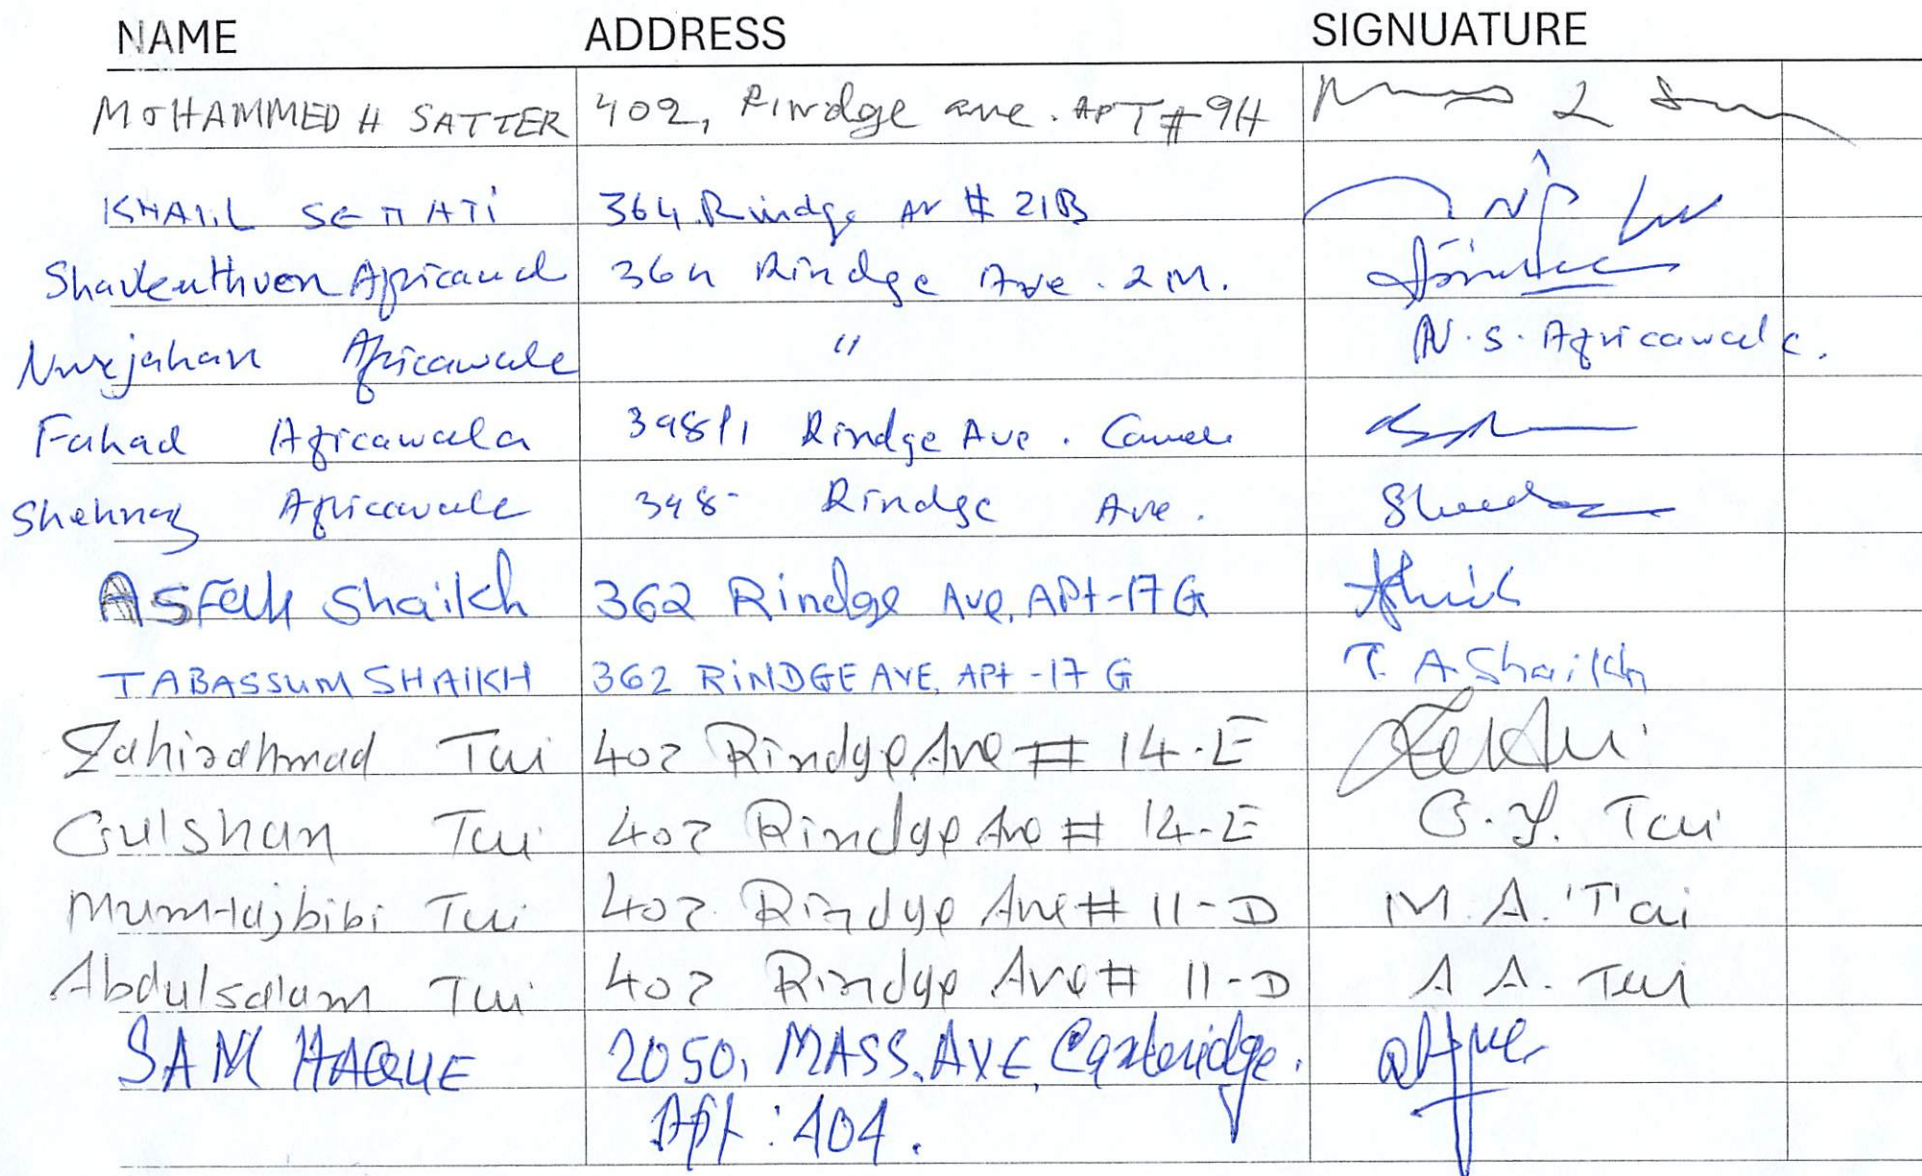 NAME ADDRESS SIGNUATURE
MOHAMMED H SATTER 402, Rindge ave. APT # 9H
KHALIL 364 Rindge AV # 21B
Africawal 364 Rindge Ave. 2M.
Nurjahan Africawala " N.S. Africawala.
Fahad Africawala 398/1 Rindge Ave.
Shehnaz Africawala 398- Rindge Ave.
Asfak Shaikh 362 Rindge Ave, APt-17G
TABASSUM SHAIKH 362 RiNDGE AVE, APt -17 G T. A. Shaikh
Zahirahmad Tai 402 Rindge Ave # 14-E
Gulshan Tai 402 Rindge Ave # 14-E G. Z. Tai
Mumtajbibi Tai 402 Rindge Ave # 11-D M. A. Tai
Abdulsalam Tai 402 Rindge Ave # 11-D A A. Tai
SAM HAQUE 2050, MASS. AVE, Cambridge.
Apt : 404.